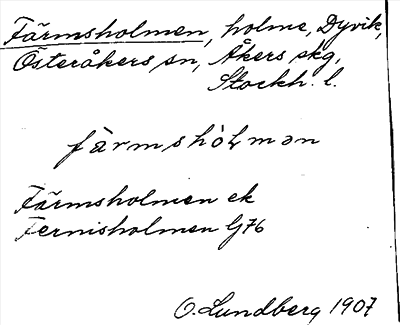 Färmsholmen, holme, Dyvik,
Österåkers sn, Åkers skg,
Stockh. l.
färmshòlmən
Färmsholmen ek
Fernisholmen G76
O. Lundberg 1907